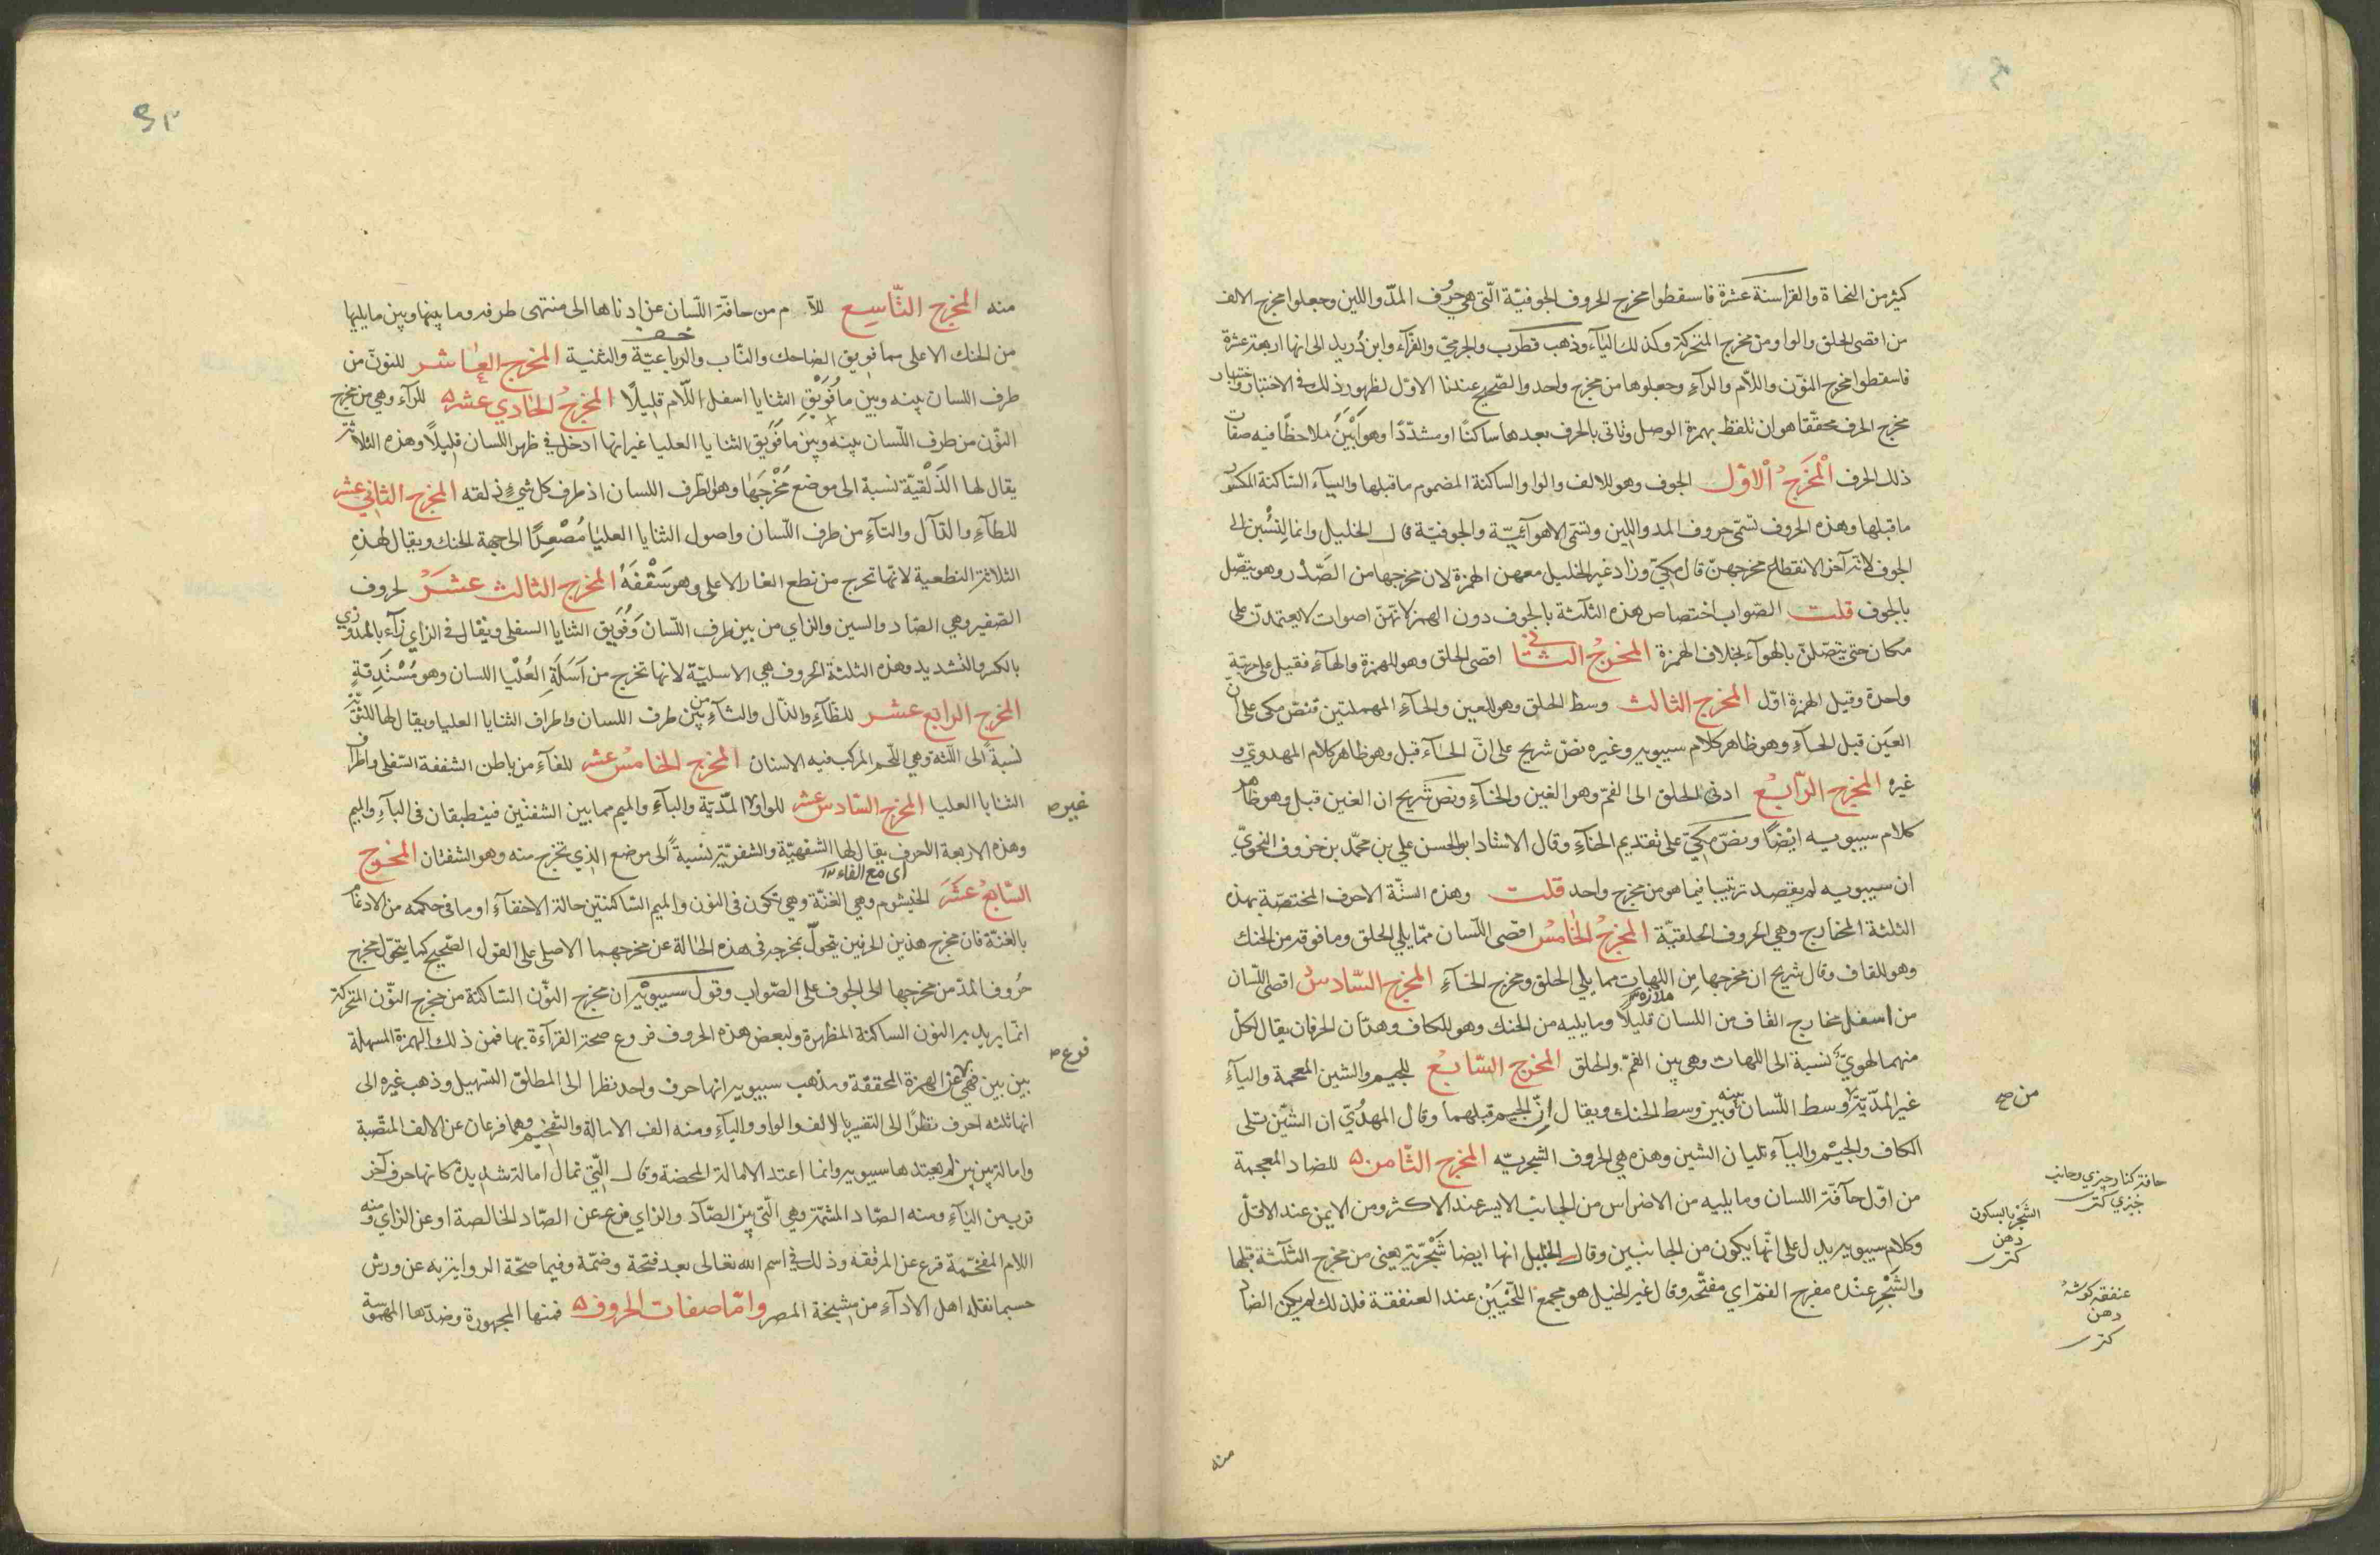 كثير من النحاة والقرا ستة عشرة فاسقطوا مخرج الحروف الجوفيّة الّتى هي حروف المدّ واللين وجعلوا مخرج الالف
من اقصى الحلق والواو من مخرج المتحركة وكذلك اليآء وذهب قطرب والجرميّ والفرّآء وابن دُريد الى انها اربعة عشرة
فاسقطوا مخرج النوّن واللاّم والرآء وجعلوها من مخرج واحد والصّحيح عندنا الاوّل لظهور ذلك في الاختبار واختبار
مخرج الحرف محقّقا هو ان تلفظ بهمزة الوصل وتاتى بالحرف بعدها ساكنًا او مشدّدًا وهو اَبْيَنُ ملاحظًا فيه صفات
ذلك الحرف الْمَخرَجُ الْاوّل الجوف وهو للالف والواو الساكنة المضموم ما قبلها واليآء السّاكنة المكسور
ما قبلها وهذه الحروف تسمّى حروف المد واللين وتسمّى الاهوآئيّة والجوفيّة قال الخليل وانما نُسِبْنَ الى
الجوف لانّه آخر الانقطاع مخرجهنّ قال مكيّ وزاد غير الخليل معهن الهمزة لان مخرجها من الصَّدر وهو يتصّل
بالجوف قلت الصّواب اختصاص هذه الثلٰثة بالجوف دون الهمز لانّهنّ اصوات لا يعتمدن على
مكان حتى يتصّلنّ بالهوآء بخلاف الهمزة المخرجُ الثانى اقصى الحلق وهو للهمزة والهآء فقيل على مرتبة
واحدة وقيل الهمزة اوّل المخرج الثالث وسط الحلق وهو للعين والحآء المهملتين فنصّ مكى على ان
العَين قبل الحآء وهو ظاهر كلام سيبويه وغيره نصّ شريح على انّ الحآء قبل وهو ظاهر كلام المهدويّ و
غيره المخرج الرّابعُ ادنى الحلق الى الفمّ وهو الغين والخآء ونصّ شريح ان الغين قبل وهو ظاهر
كلام سيبويه ايضًا ونصّ مكيّ على تقديم الخآء وقال الاستاد ابو الحسن علي بن محمّد بن خروف النحويّ
ان سيبويه لم يقصد ترتيبا فيما هو من مخرج واحد قلت وهذه الستّة الاحرف المختصّة بهذه
الثلثة المخارج وهي الحروف الحلقيّة المخرجُ الخامسُ اقصى اللّسان ممّا يلي الحلق وما فوقه من الحنك
وهو للقاف وقال شريح ان مخرجها مِن اللهات مما يلي الحلق ومخرج الخآء المخرج السّادسُ اقصى اللّسان
من اسفل مخارج القاف من اللسان قليلاً وما يليه من الحنك وهو للكاف وهذان الحرفان يقال لكلّ
منهما لهويٌّ نسبة الى اللهات وهى بين الفمّ والحلق المخرج السّابعُ للجيم والشين المعجمة واليآء
غير المدّيّة وسط اللّسان بينه وبين وسط الحنك ويقال إنّ الجيم قبلهما وقال المهدُويّ ان الشيّن تلى
الكاف والجيْم واليآء تليان الشين وهذه هي الحروف الشجريّه المخرج الثّامن للضاد المعجمة
من اوّل حآفّة اللسان وما يليه من الاضراس من الجانب الايسر عند الاكثر ومن الايمن عند الاقلّ
وكلام سيبويه يدل على انّها يكون من الجانبين وقال الخليل انها ايضا شَجْريّة يعنى من مخرج الثلٰثة قبلها
والشَجْرِ عنْده مفرج الفمّ اى مفتّحه وقال غير الخليل هو مجمع اللّحْيَيَن عند العنفقة فلذلك لم يكن الضاد
ملازه
من صح
حافّة كنار چيزى وجانب
چيزى كنز
الشجْر بالسكون
دهن
كنز
عنفقه كوشهٔ
دهن
كنز
منه
منه المخرج التّاسِع للاّم من حافّة اللّسان عن ادناها الى منتهى طرفه وما بينها وبين ما يليها
من الحنك الاعلى مما فويق الضاحك والنّاب والرباعيّة والثنية المخرج العٰاشر للنوّن من
طرف اللسان بينه وبين ما فُوَيْقِ الثنايا اسفل اللّام قليلًا المخرجُ الحٰادي عشر للرآء وهي من مخرج
النوّن من طرف اللّسان بينه وبين ما فَوَيق الثنايا العليا غير انها ادخل في ظهر اللسان قليلاً وهذه الثلاثة
يقال لها الذَلْقيّة نسبة الى موضع مُخْرجَهٰا وهو الطّرف اللسان اذ طرف كل شيءٍ ذلقه المخرج الثاني عشر
للطآء والدآل والتآء من طرف اللّسان واصول الثنايا العليٰا مُصْعِدًا الى جهة الحنك ويقال لهٰذِهِ
الثلاثة النطعية لانّها تخرج من نطع الغار الاعلى وهو سَقْفَهُ المخرج الثالث عشَرَ لحروف
الصّفير وهي الصّاد والسين والزاي من بين طرف اللّسان وَفُوَيق الثنايا السفلى ويقال في الزاي زآء بالمد وزى
بالكسر والتشديد وهذه الثلثة الحروف هي الاسليّة لانها تخرج من اَسَلَةِ العُلْيا اللسان وهو مُسْتَدِقّةٍ
المخرج الرابع عشر للظآء والذّال والثآء من بين طرف اللسان واطراف الثنايا العليا ويقال لها اللثويّة
نسبةً الى اللّثة وهي اللّحم المركب فيه الاسنان المخرج الخامسُ عشر للفآء من باطن الشففة السّفلى واطراف
الثنايا العليا المخرج السّادس عشر للواو لا المدّيّة والبآء والميم مما بين الشفتين فينطبقان فى البآء والميم
وهذه الاربعة الاحرف يقال لها الشفهيّة والشفويّة نسبةً الى موضع الذي تخرج منه وهو الشفتان المخرج
اى مع الفاء
السّابعُ عَشَرَ الخيشوم وهي الغنّة وهي تكون فى النون والميم السّاكنتين حالة الاخفآء او ما فى حكمه من الادغام
بالغنّة فان مخرج هذين الحرفين يتحولّ مخرجه فى هذه الحٰالة عن مخرجهما الاصلي على القول الصّحيح كما يتحوّل مخرج
حُروف المدّ من مخرجها الى الجوف على الصّواب وقول سيبويْه ان مخرج النوّن السّاكنة من مخرج النوّن المتحركة
انمّا يريد به النون الساكنة المظهرة ولبعض هذه الحروف فروع صحة القرآءة بها فمن ذلك الهمزة المسهلة
بين بين فهي عن الهمزة المحققة ومذهب سيبويه انها حرف واحد نظرا الى المطلق التسهيل وذهب غيره الى
انها ثلثه احرف نظرًا الى التفير بالالف والواو واليآء ومنه الف الامالة والتفخيم وهما فرعان عن الالف المنتصبة
وامالة بين بين لم يعتد ها سيبويه وانما اعتد الامالة المحضة وقال الّتي تمال امالة شديدة كانها حرف آخر
قرب من اليآء ومنه الصّاد المشمّة وهى الّتى بين الصّآد والزاي فرع عن الصّاد الخالصة او عن الزاي ومنه
اللام المفخمّة فرع عن المرققه وذلك في اسم الله تعالى بعد فتحة وضمّة وفيما صحّة الروايه به عن ورش
حسبما نقله اهل الادآء من مشيخة المصر وامّا صفات الحروف فمنها المجهورة وضدّها المهموسة
غير ص
فرع ص